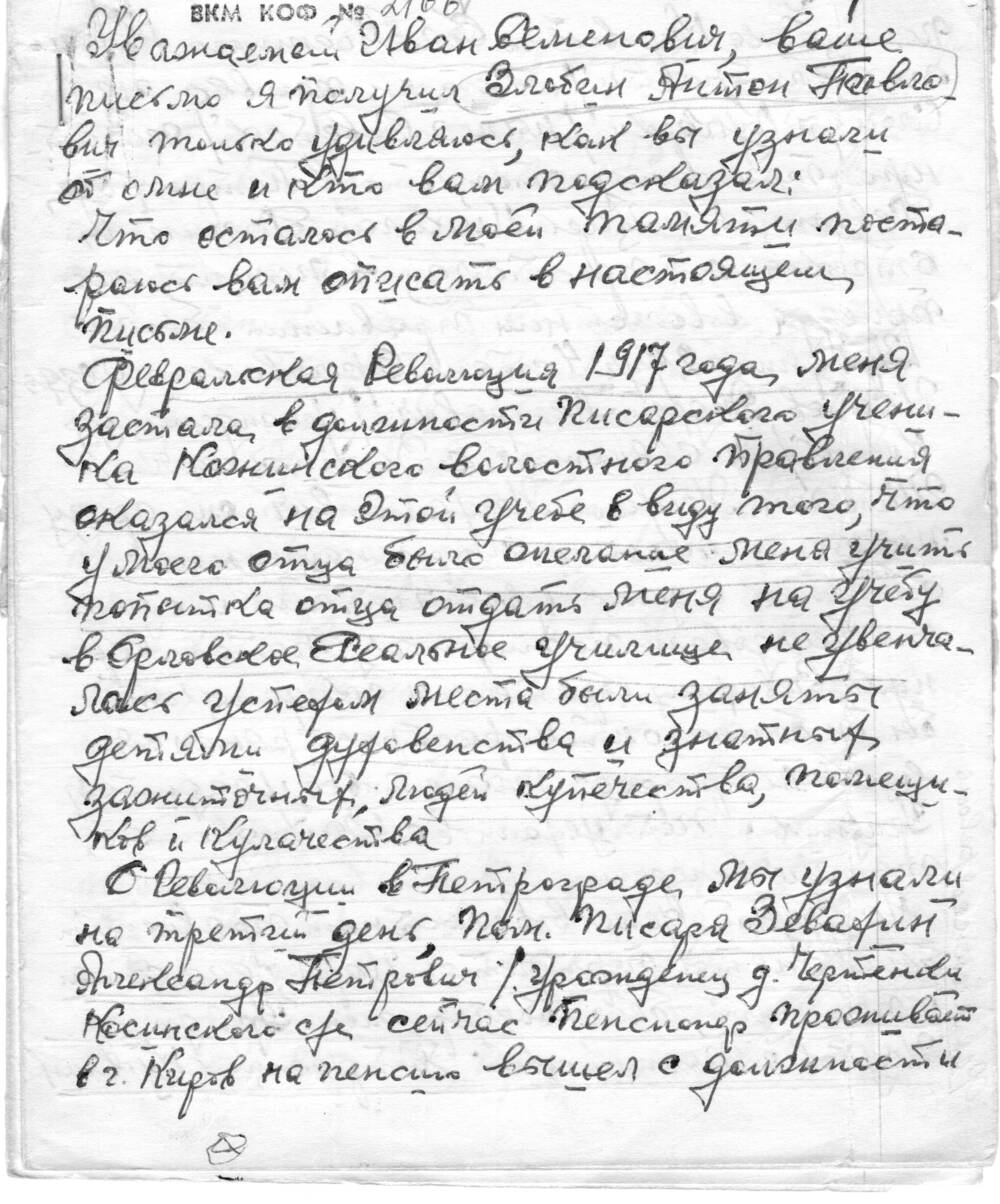 ВКМ КОФ №
Уважаемый Иван Семенович, ваше
письмо я получил Злобин Антон Павло-
вич только удивляюсь, как вы узнали
от омне и кто вам подсказал:
Что осталось в моей памяти поста-
раюсь вам описать в настоящем
письме.
Февральская Революция 1917 года, меня
застала, в должности Писарского учени-
ка волостного Правления
оказался на этой учебе в виду того, что
у моего отца было желание меня учить
попытка отца отдать меня на учебу
в Орловское Реальное училище не увенча-
лась успехом места были заняты
детями духовенства и знатных
зажиточных, людей купечества, помещи-
ков и Кулачества
О Революции в Петрограде, мы узнали
на третий день, Пом. Писаря
Александр Петрович /. урожденец д. Чертенки
Косинского с/с сейчас Пенсионер проживает
в г. Киров на пенсию вышел с должности